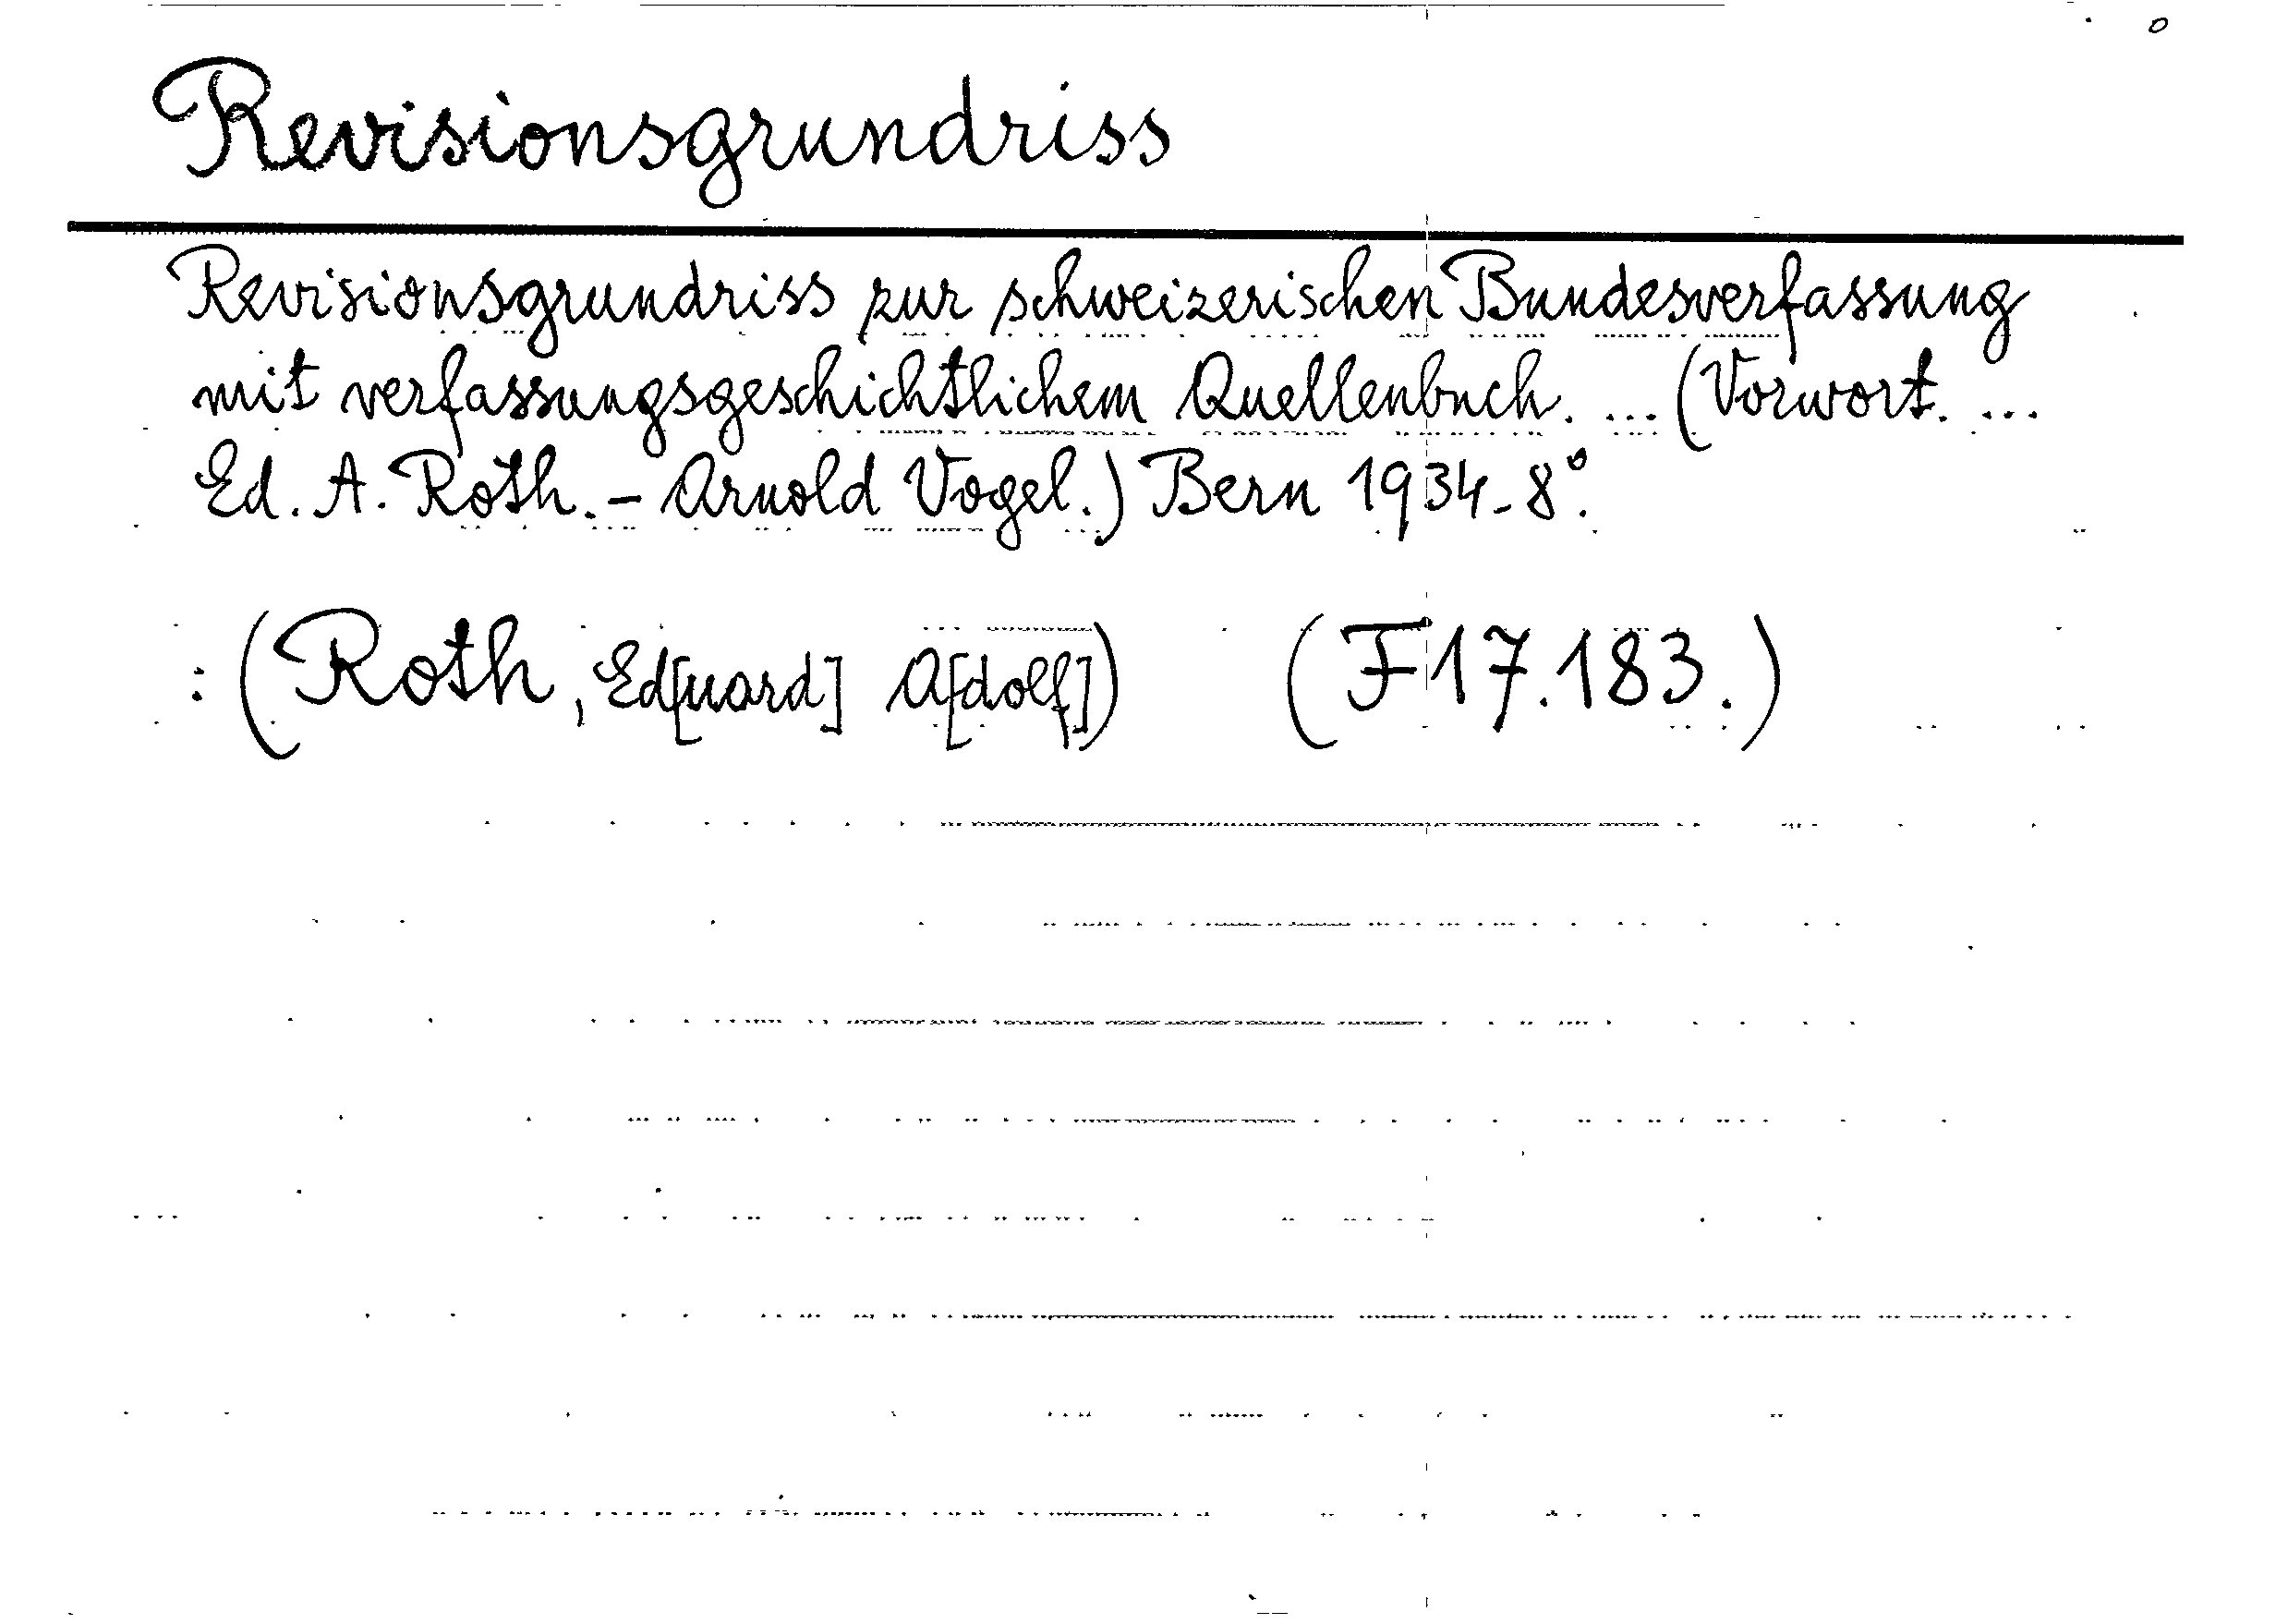 Revisionsgrundriss
Revisionsgrundriss zur schweizerischen Bundesverfassung
mit verfassungsgeschichtlichem Quellenbuch. ... (Vorwort. ...
Ed. A. Roth. - Arnold Vogel.) Bern 1934 - 8°.
: (Roth, Ed[uard] A[dolf]) (F 17.183.)